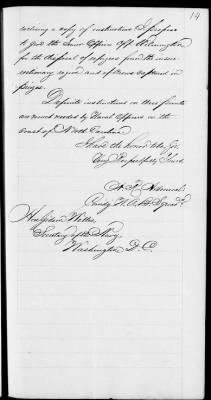 14
enclosing a copy of instructions I propose
to give the Senior Officers off Wilmington
for the disposal of refugees from the insur-
rectionary region and of Crews captured in
prizes.
Definite instructions on these points
are much needed by Naval Officers on the
coast of North Carolina.
I have the honor to be, Sir,
Very Respectfully Yours,
A. R. Admiral,
Comdg N. A. B. Squad.
Hon Gideon Welles,
Secretary of the Navy,
Washington D. C.